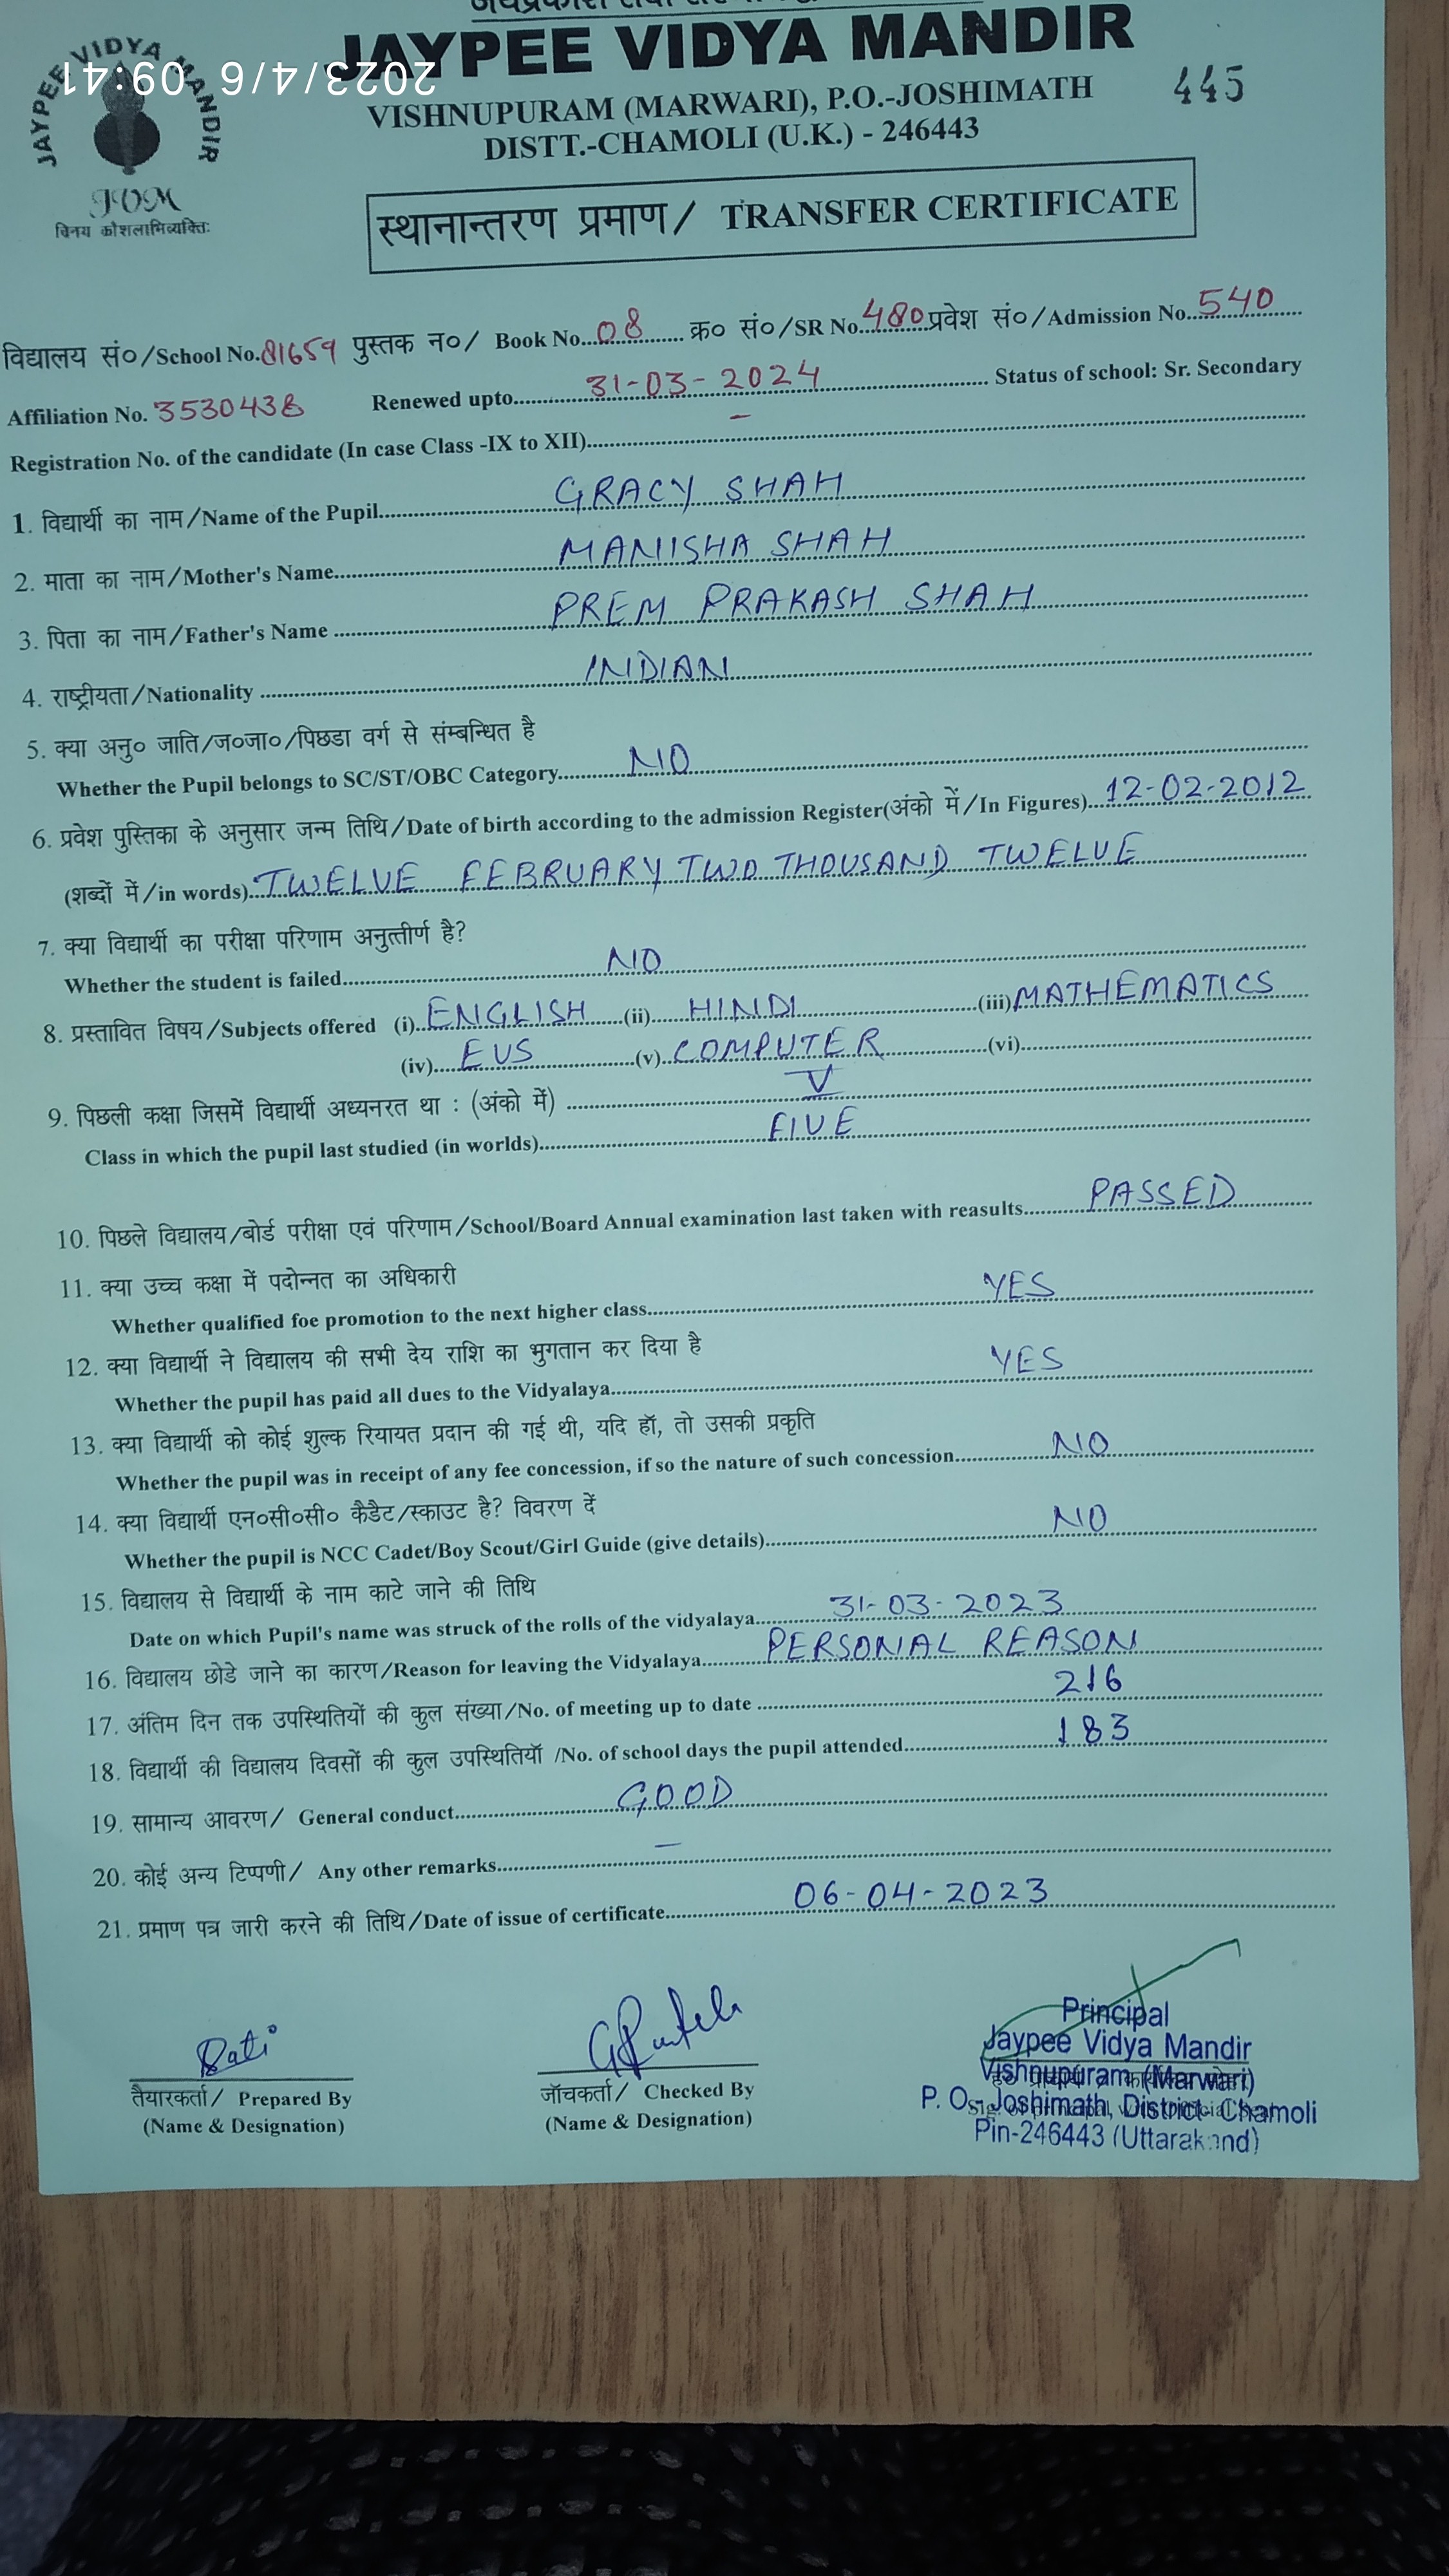 JAYPEE VIDYA MANDIR
JAYPEE VIDYA MANDIR
2023/4/6 09:41
445
VISHNUPURAM (MARWARI), P.O.-JOSHIMATH
DISTT.-CHAMOLI (U.K.) - 246443
JVM
विनय कौशलाभिव्यक्तिः
स्थानान्तरण प्रमाण/ TRANSFER CERTIFICATE
विद्यालय सं०/School No. 81659 पुस्तक न०/ Book No. 08 क्र० सं०/SR No. 480 प्रवेश सं०/Admission No. 540
Affiliation No. 3530438 Renewed upto 31-03-2024 Status of school: Sr. Secondary
Registration No. of the candidate (In case Class -IX to XII) –
1. विद्यार्थी का नाम/Name of the Pupil GRACY SHAH
2. माता का नाम/Mother's Name MANISHA SHAH
3. पिता का नाम/Father's Name PREM PRAKASH SHAH
4. राष्ट्रीयता/Nationality INDIAN
5. क्या अनु० जाति/ज०जा०/पिछडा वर्ग से संम्बन्धित है
Whether the Pupil belongs to SC/ST/OBC Category NO
6. प्रवेश पुस्तिका के अनुसार जन्म तिथि/Date of birth according to the admission Register(अंको में/In Figures) 12-02-2012
(शब्दों में/in words) TWELVE FEBRUARY TWO THOUSAND TWELVE
7. क्या विद्यार्थी का परीक्षा परिणाम अनुत्तीर्ण है?
Whether the student is failed NO
8. प्रस्तावित विषय/Subjects offered (i) ENGLISH (ii) HINDI (iii) MATHEMATICS
(iv) EVS (v) COMPUTER (vi)
9. पिछली कक्षा जिसमें विद्यार्थी अध्यनरत था : (अंको में) V
Class in which the pupil last studied (in worlds) FIVE
10. पिछले विद्यालय/बोर्ड परीक्षा एवं परिणाम/School/Board Annual examination last taken with reasults PASSED
11. क्या उच्च कक्षा में पदोन्नत का अधिकारी
Whether qualified foe promotion to the next higher class YES
12. क्या विद्यार्थी ने विद्यालय की सभी देय राशि का भुगतान कर दिया है
Whether the pupil has paid all dues to the Vidyalaya YES
13. क्या विद्यार्थी को कोई शुल्क रियायत प्रदान की गई थी, यदि हॉ, तो उसकी प्रकृति
Whether the pupil was in receipt of any fee concession, if so the nature of such concession NO
14. क्या विद्यार्थी एन०सी०सी० कैडैट/स्काउट है? विवरण दें
Whether the pupil is NCC Cadet/Boy Scout/Girl Guide (give details) NO
15. विद्यालय से विद्यार्थी के नाम काटे जाने की तिथि
Date on which Pupil's name was struck of the rolls of the vidyalaya 31-03-2023
16. विद्यालय छोडे जाने का कारण/Reason for leaving the Vidyalaya PERSONAL REASON
17. अंतिम दिन तक उपस्थितियों की कुल संख्या/No. of meeting up to date 216
18. विद्यार्थी की विद्यालय दिवसों की कुल उपस्थितियॉ /No. of school days the pupil attended 183
19. सामान्य आवरण/ General conduct GOOD
20. कोई अन्य टिप्पणी/ Any other remarks –
21. प्रमाण पत्र जारी करने की तिथि/Date of issue of certificate 06-04-2023
तैयारकर्ता/ Prepared By
(Name & Designation)
जॉचकर्ता/ Checked By
(Name & Designation)
Principal
Jaypee Vidya Mandir
Vishnupuram (Marwari)
P. O.- Joshimath, District- Chamoli
Pin-246443 (Uttarakhand)